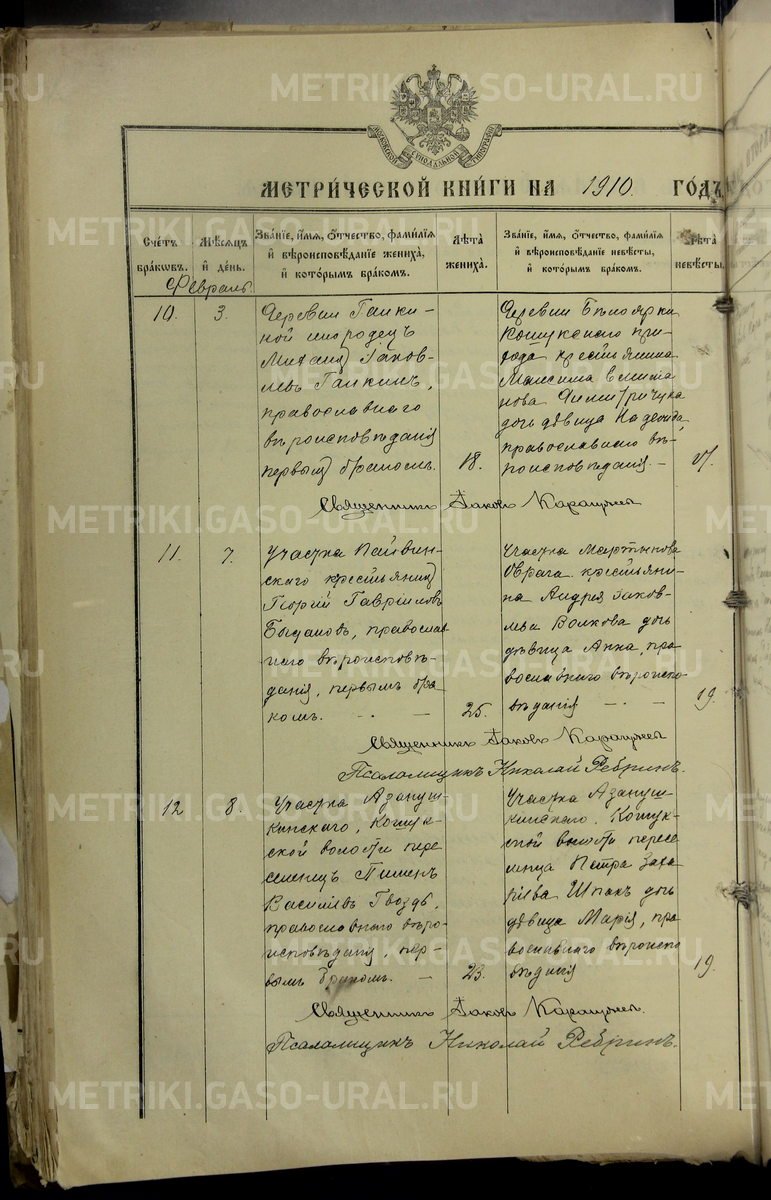 МЕТРИЧЕСКОЙ КНИГИ НА 1910 ГОДЪ
Счетъ браковъ.
Мѣсяцъ и день.
Званіе, имя, отчество, фамилія и вѣроисповѣданіе жениха, и которымъ бракомъ.
Лѣта жениха.
Званіе, имя, отчество, фамилія и вѣроисповѣданіе невѣсты, и которымъ бракомъ.
Лѣта невѣсты.
Февраль
10.
3.
Деревни Галки-
ной инородецъ
Михаилъ Іаков-
левъ Галкинъ,
православнаго
вѣроисповѣданія
первымъ бракомъ.
18.
Деревни Бѣлоярки
Кошукскаго при-
хода крестьянина
Максима
дочь дѣвица Надежда,
православнаго вѣ-
роисповѣданія. —
Священникъ Іаковъ
11.
7.
Участка Пайвин-
скаго крестьянинъ
Георгій Гавріиловъ
православ-
наго вѣроисповѣ-
данія, первымъ бра-
комъ. — . —
25.
Участка Мартынова
Оврага крестьяни-
на Андрея Іаков-
лева Волкова дочь
дѣвица Анна, пра-
вославнаго вѣроиспо-
вѣданія — . —
19.
Священникъ Іаковъ
Псаломщикъ Николай Ребринъ.
12
8.
Участка Азануш-
кинскаго, Кошук-
ской волости пере-
селенецъ Пименъ
Василіевъ Гвоздь,
православнаго вѣро-
исповѣданія, пер-
вымъ бракомъ. —
23.
Участка Азануш-
кинскаго, Кошук-
ской волости пересе-
ленца Петра Заха-
ріева Шпакъ дочь
дѣвица Марія, пра-
вославнаго вѣроиспо-
вѣданія
19.
Священникъ Іаковъ
Псаломщикъ Николай Ребринъ.
METRIKI.GASO-URAL.RU